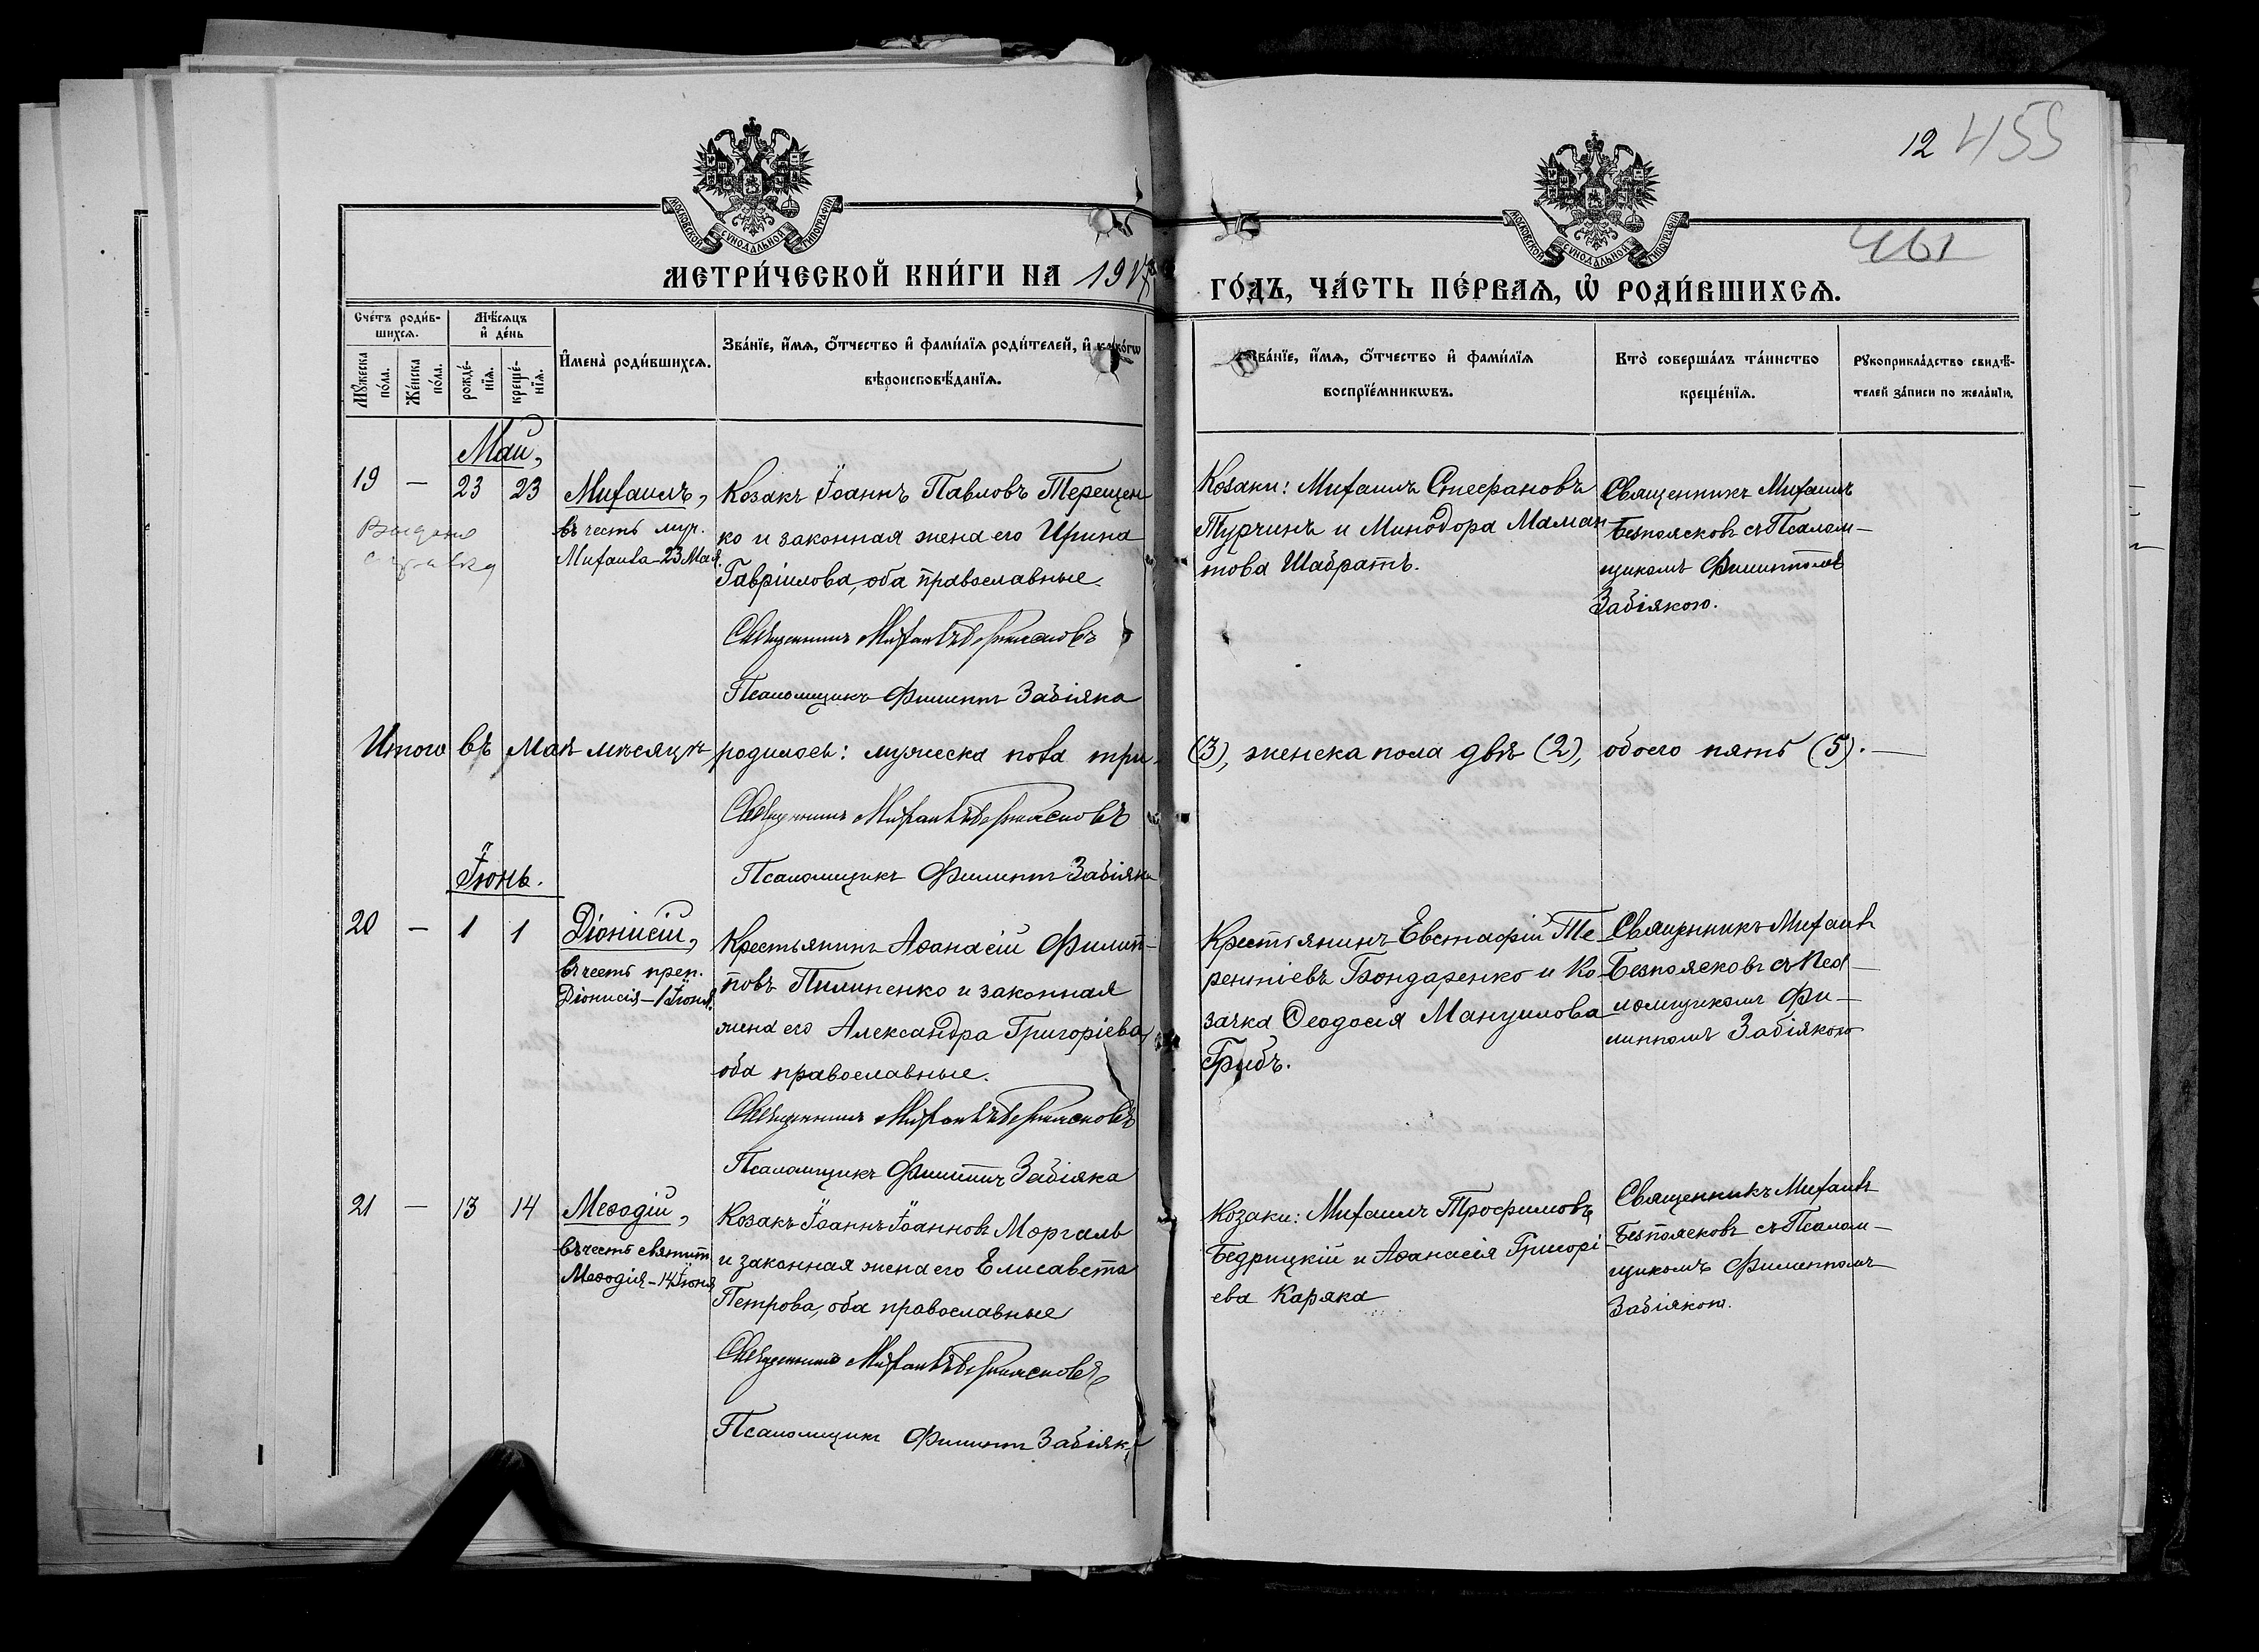 12 455
461
МОСКОВСКОЙ СѴНОДАЛЬНОЙ ТИПОГРАФІИ
МОСКОВСКОЙ СѴНОДАЛЬНОЙ ТИПОГРАФІИ
МЕТРИ́ЧЕСКОЙ КНИ́ГИ НА 191
ГО́ДЪ, ЧА́СТЬ ПЕ́РВАѦ, Ѡ РОДИ́ВШИХСѦ.
Сче́тъ роди́в-
шихсѧ.
Мꙋ́жеска по́ла.
Же́нска по́ла.
Мѣ́сѧцъ и҆ де́нь
рожде́-
нїѧ.
креще́-
нїѧ.
И҆мена̀ роди́вшихсѧ.
Зва́нїе, и҆́мѧ, ѻ҆́тчество и҆ фами́лїѧ роди́телей, и҆ како́гѡ
вѣроисповѣ́данїѧ.
Зва́нїе, и҆́мѧ, ѻ҆́тчество и҆ фами́лїѧ
воспрїе́мникѡвъ.
Кто̀ соверша́лъ та́инство
креще́нїѧ.
Рꙋкоприкла́дство свидѣ́-
телей за́писи по жела́нїю.
Май,
19 — 23 23 Михаилъ,
въ честь муч.
Михаила 23 Мая.
Выдано
справка
Козакъ Іоаннъ Павловъ Терещен
ко и законная жена его Ирина
Гавріилова, оба православные.
Священникъ Михаилъ Безпоясковъ
Псаломщикъ Филиппъ Забіяка
Козаки: Михаилъ Стефановъ
Турчинъ и Минодора Маман
това Шабратъ.
Священникъ Михаилъ
Безпоясковъ съ Псалом-
щикомъ Филиппомъ
Забіякою.
Итого въ Маѣ мѣсяцѣ родилось: мужеска пола три (3), женска пола двѣ (2), обоего пять (5). —
Священникъ Михаилъ Безпоясковъ
Псаломщикъ Филиппъ Забіяка
Іюнь.
20 — 1 1 Діонисій,
въ честь преп.
Діонисія — 1 Іюня.
Крестьянинъ Аѳанасій Филип-
повъ Пилипенко и законная
жена его Александра Григоріева,
оба православные.
Священникъ Михаилъ Безпоясковъ
Псаломщикъ Филиппъ Забіяка
Крестьянинъ Евстафій Те-
рентіевъ Бондаренко и Ко-
зачка Ѳеодосія Мануилова
Грибъ.
Священникъ Михаилъ
Безпоясковъ съ Пса-
ломщикомъ Фи-
липпомъ Забіякою
21 — 13 14 Меѳодій,
въ честь святит.
Меѳодія — 14 Іюня
Козакъ Іоаннъ Іоанновъ Моргаль
и законная жена его Елисавета
Петрова, оба православные
Священникъ Михаилъ Безпоясковъ
Псаломщикъ Филиппъ Забіяка
Козаки: Михаилъ Трофимовъ
Бедрицкій и Аѳанасія Григорі
ева Каряка
Священникъ Михаилъ
Безпоясковъ съ Псалом-
щикомъ Филиппомъ
Забіякою.